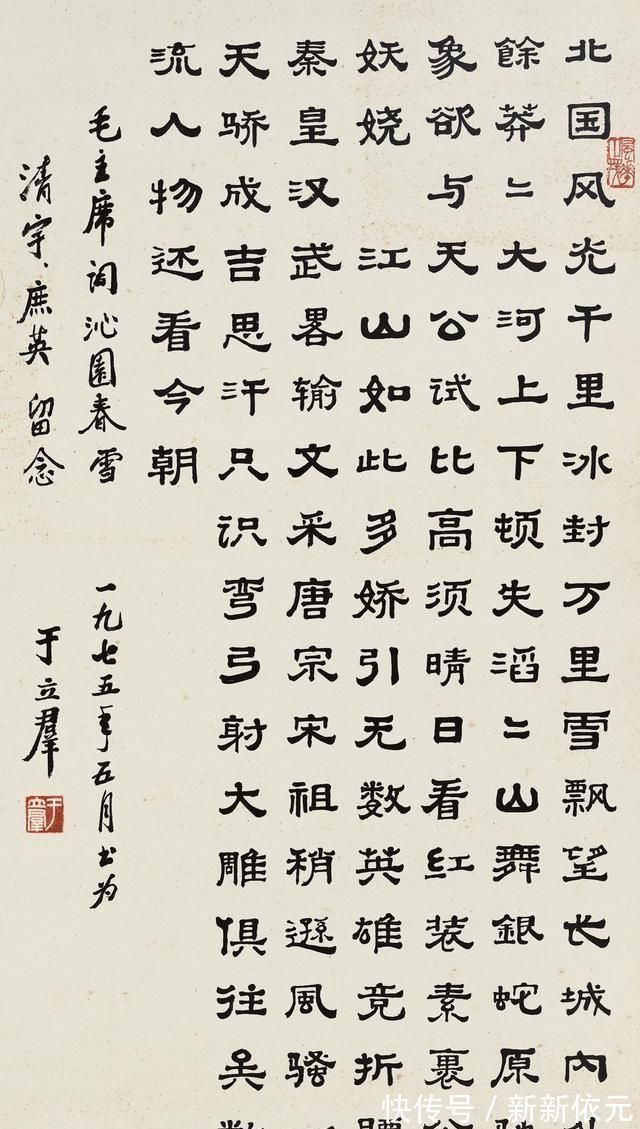 北国风光千里冰封万里雪飘望长城内
餘莽〻大河上下顿失滔〻山舞銀蛇原
象欲与天公试比高须晴日看红装素裹
妖娆江山如此多娇引无数英雄竞折
秦皇汉武畧输文采唐宗宋祖稍遜風骚
天骄成吉思汗只识弯弓射大雕俱往矣
流人物还看今朝
毛主席词沁園春雪 一九七五年五月书为
清宇、庶英留念 于立羣
于立羣
快传号 / 新新依元